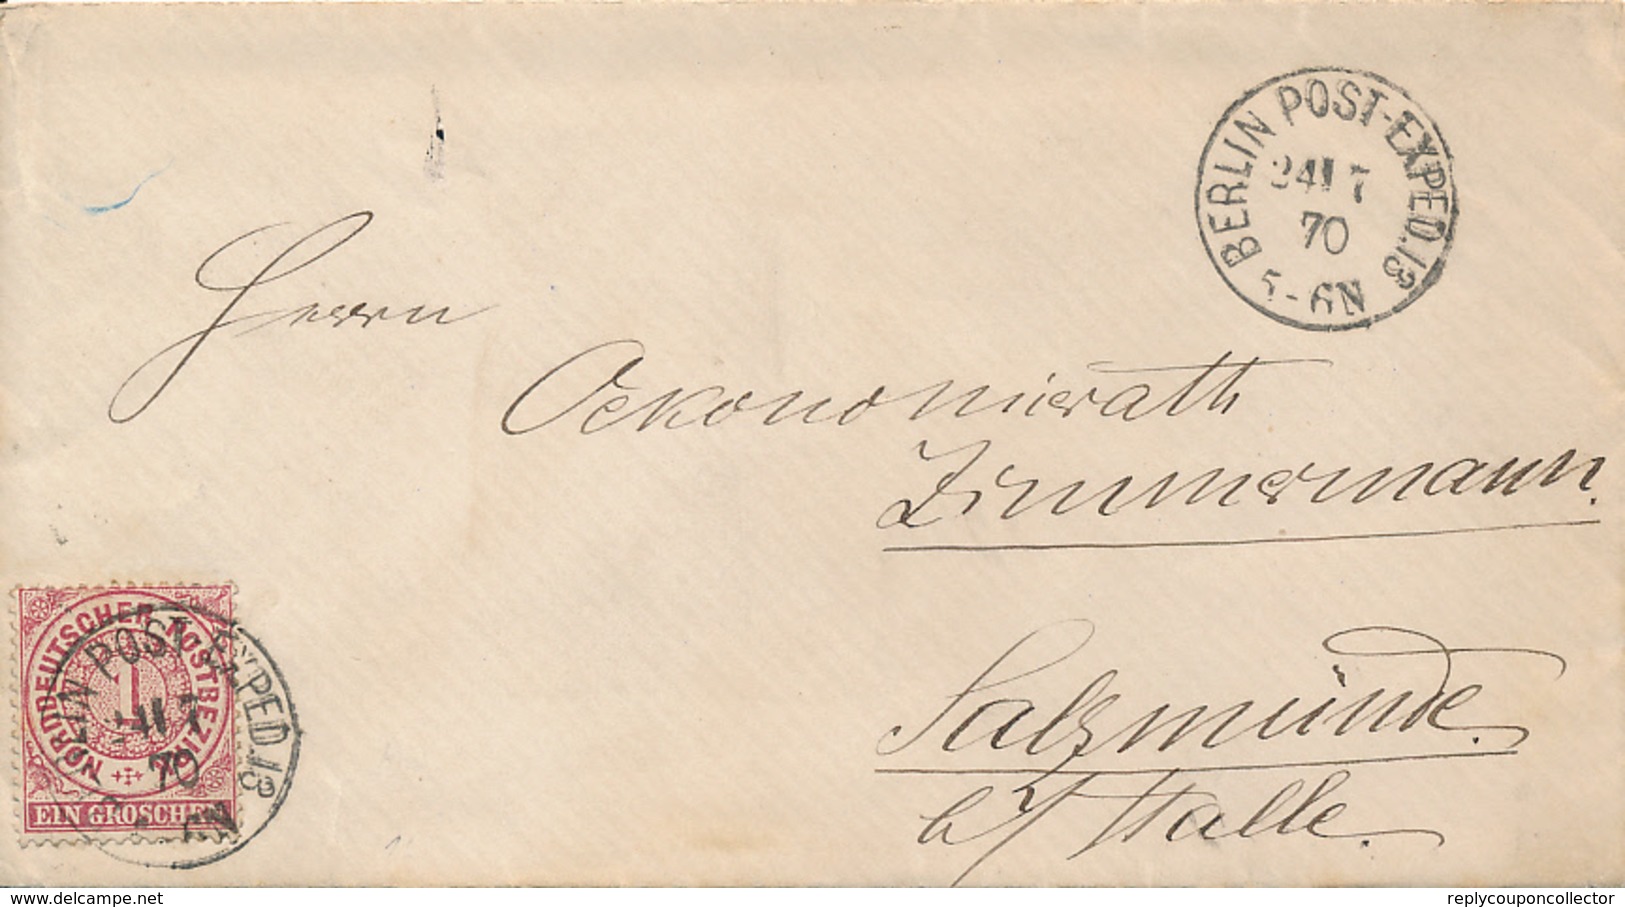 BERLIN POST-EXPED. 13
24 7
70
5-6N
Herrn
Oekonomierath
Zimmermann.
Salzmünde.
b/Halle.
NORDDEUTSCHER POSTBEZIRK
1
EIN GROSCHEN
BERLIN POST-EXPED. 13
24 7
70
6N
replycouponcollector